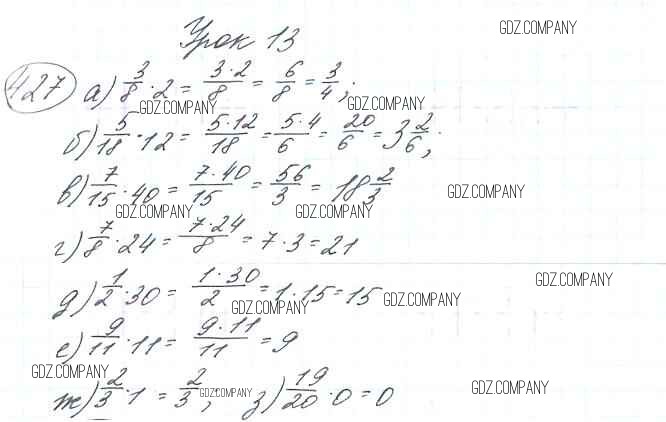 GDZ.COMPANY
Урок 13
427 а) 3/8 · 2 = 3·2/8 = 6/8 = 3/4;
GDZ.COMPANY GDZ.COMPANY
б) 5/18 · 12 = 5·12/18 = 5·4/6 = 20/6 = 3 2/6;
в) 7/15 · 40 = 7·40/15 = 56/3 = 18 2/3
GDZ.COMPANY
GDZ.COMPANY GDZ.COMPANY
г) 7/8 · 24 = 7·24/8 = 7·3 = 21
GDZ.COMPANY
д) 1/2 · 30 = 1·30/2 = 1·15 = 15
GDZ.COMPANY GDZ.COMPANY
е) 9/11 · 11 = 9·11/11 = 9
GDZ.COMPANY
ж) 2/3 · 1 = 2/3; з) 19/20 · 0 = 0
GDZ.COMPANY GDZ.COMPANY